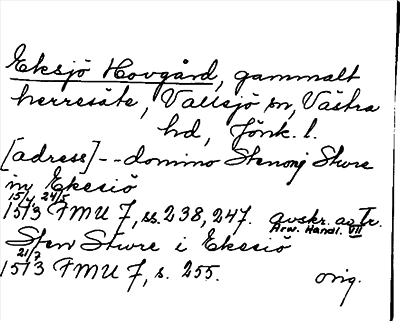 Eksjö Hovgård, gammalt
herresäte, Vallsjö sn, Västra
hd, Jönk. l.
[adress]--domino Stenonj Sture
in Ekesiö
15/4, 24/5
1513 FMU 7, ss. 238, 247. avskr. o. tr.
Arw. Handl. VII
Sten Sture i Ekesiö
21/7
1513 FMU 7, s. 255. orig.